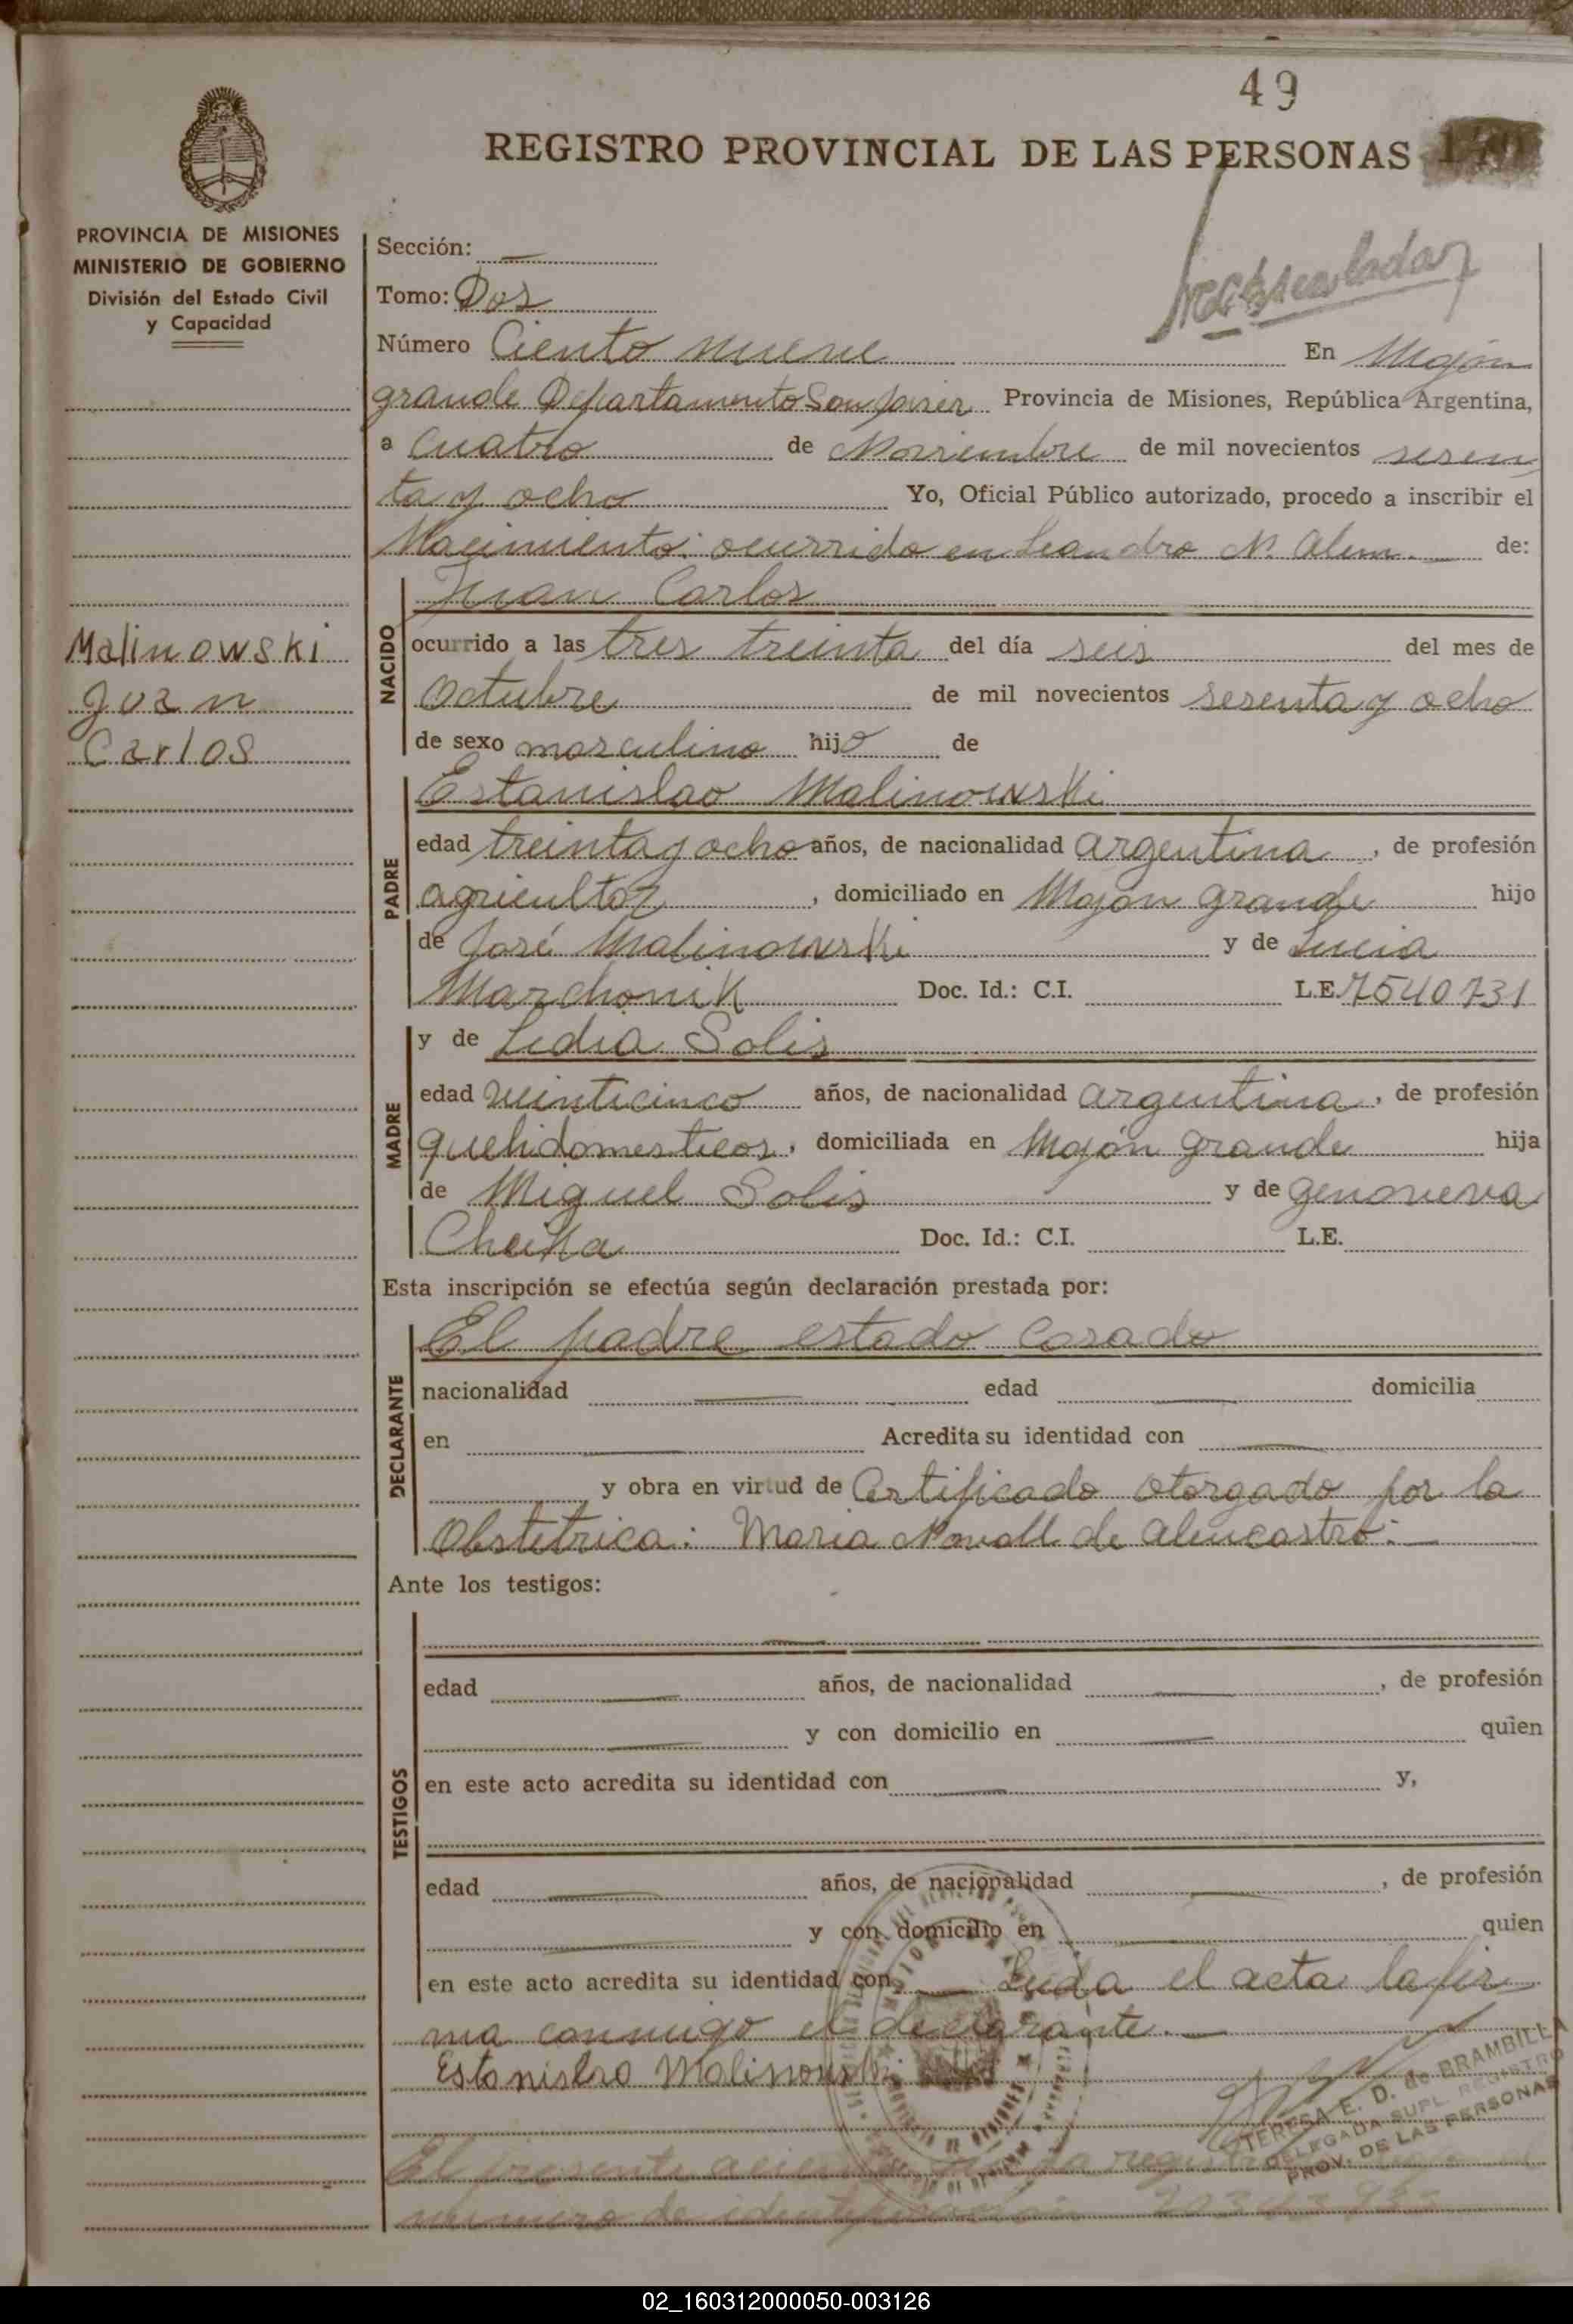 49
REGISTRO PROVINCIAL DE LAS PERSONAS
PROVINCIA DE MISIONES
MINISTERIO DE GOBIERNO
División del Estado Civil
y Capacidad
Sección: —
Tomo: Dos
Número Ciento nueve En Mojón
grande Departamento San Javier Provincia de Misiones, República Argentina,
a cuatro de Noviembre de mil novecientos sesen
ta y ocho Yo, Oficial Público autorizado, procedo a inscribir el
Nacimiento: ocurrido en Leandro N. Alem. de:
NACIDO
Juan Carlos
ocurrido a las tres treinta del día seis del mes de
Octubre de mil novecientos sesenta y ocho
de sexo masculino hijo de
Malinowski
Juan
Carlos
PADRE
Estanislao Malinowski
edad treinta y ocho años, de nacionalidad argentina, de profesión
agricultor, domiciliado en Mojón grande hijo
de José Malinowski y de Lucia
Marchonik Doc. Id.: C.I. L.E. 7540731
MADRE
y de Lidia Solis
edad veinticinco años, de nacionalidad argentina, de profesión
quehdomesticos, domiciliada en Mojón grande hija
de Miguel Solis y de genoveva
Cheika Doc. Id.: C.I. L.E.
Esta inscripción se efectúa según declaración prestada por:
DECLARANTE
El padre estado casado
nacionalidad — edad — domicilia
en — Acredita su identidad con —
y obra en virtud de Certificado otorgado por la
Obstetrica: Maria de Alencastro.—
Ante los testigos:
TESTIGOS
—
edad — años, de nacionalidad —, de profesión
— y con domicilio en — quien
en este acto acredita su identidad con — y,
edad — años, de nacionalidad —, de profesión
— y con domicilio en — quien
en este acto acredita su identidad con — Leida el acta la fir
ma conmigo el declarante.—
Estanislao Malinowski
TERESA E. D. de BRAMBILLA
DELEGADA SUPL. REGISTRO
PROV. DE LAS PERSONAS
El presente
numero de
02_160312000050-003126